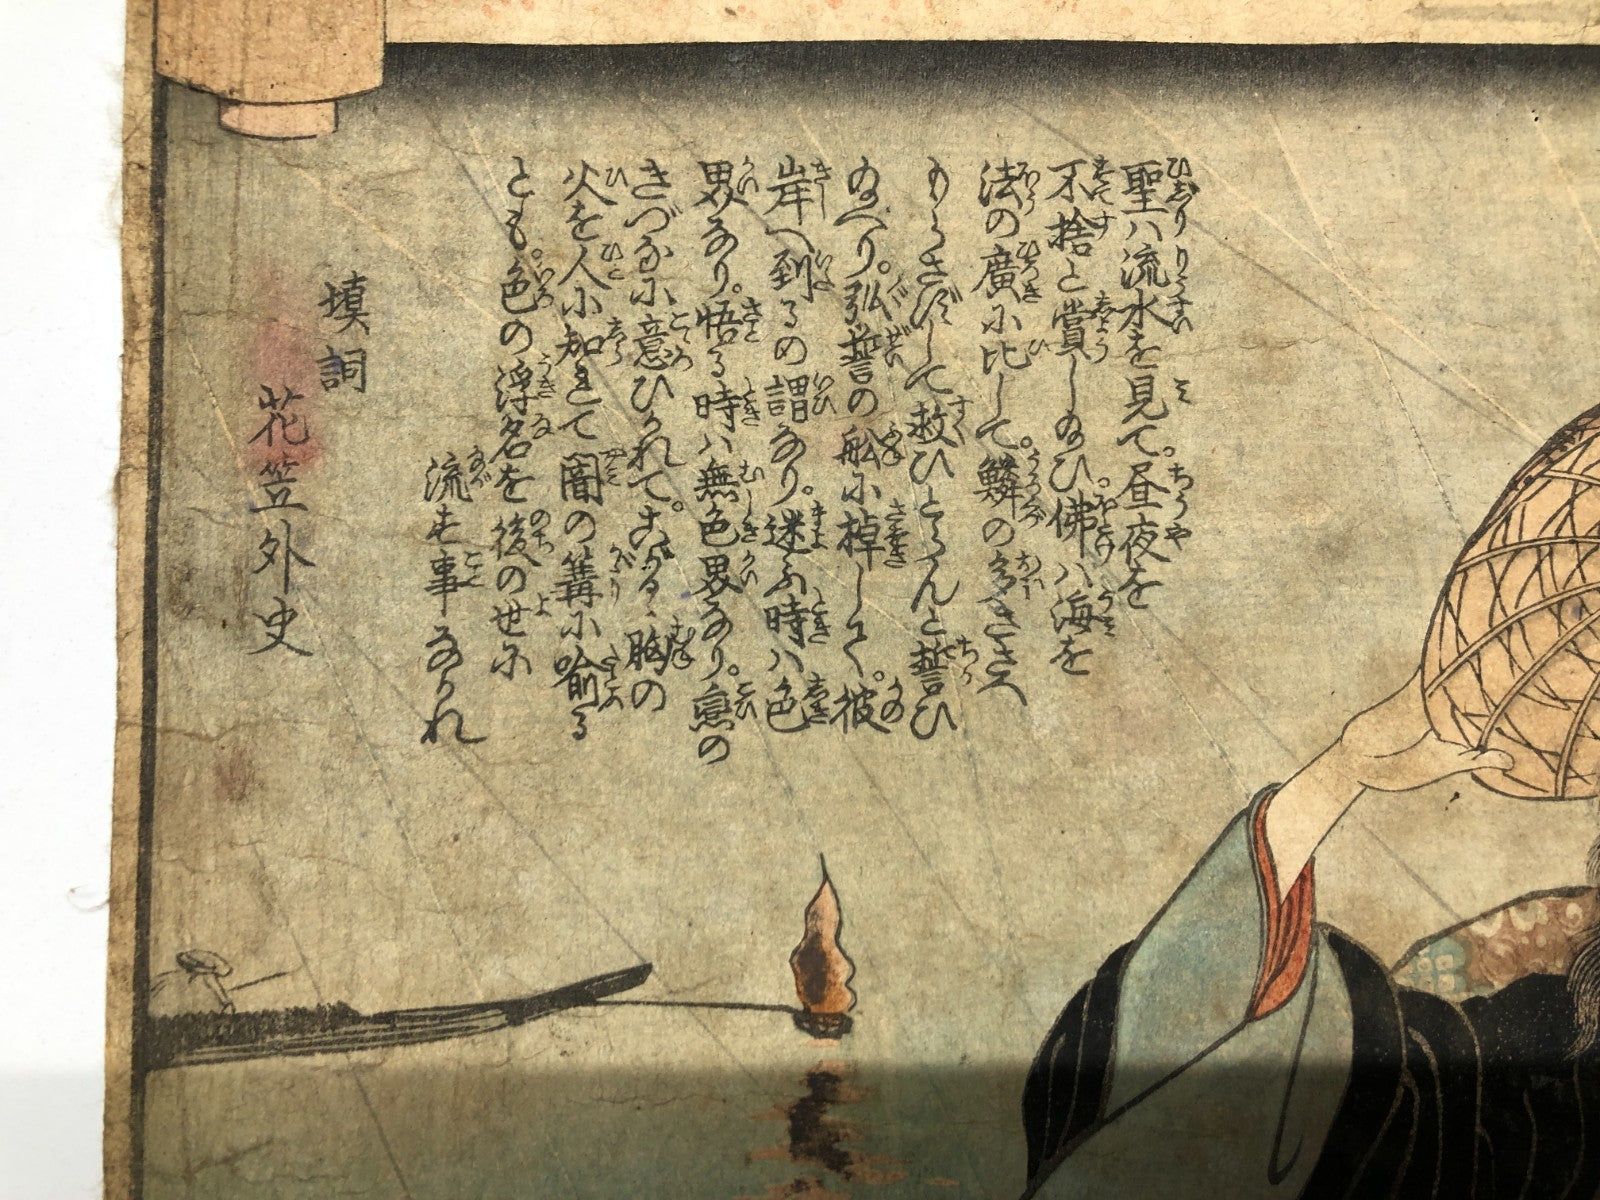 聖ハ流水を見て。昼夜を
不捨と賞し給ひ。佛ハ海を
法の廣に比して。鱗の多きさへ
もらさずして救ひとらんと誓ひ
給へり。弘誓の舩に棹して。彼
岸へ到るの謂なり。迷ふ時ハ色
界なり。悟る時ハ無色界なり。戀の
きづなに意ひかれて。こがるゝ胸の
火を人に知れて闇の篝に喩る
とも。色の浮名を後の世に
流す事なかれ
填詞
花笠外史